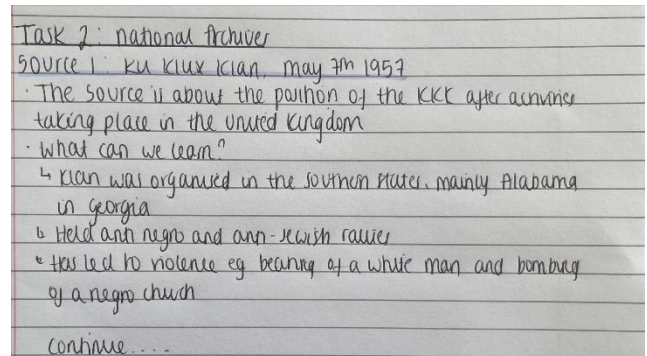 Task 2: national Archives
Source 1: Ku Klux Klan, may 7th 1957
· The source is about the position of the KKK after activities
taking place in the United Kingdom
· What can we learn?
↳ Klan was organised in the southern states, mainly Alabama
in Georgia
↳ Held anti negro and anti-Jewish rallies
↳ Has led to violence eg beating of a white man and bombing
of a negro church
continue....